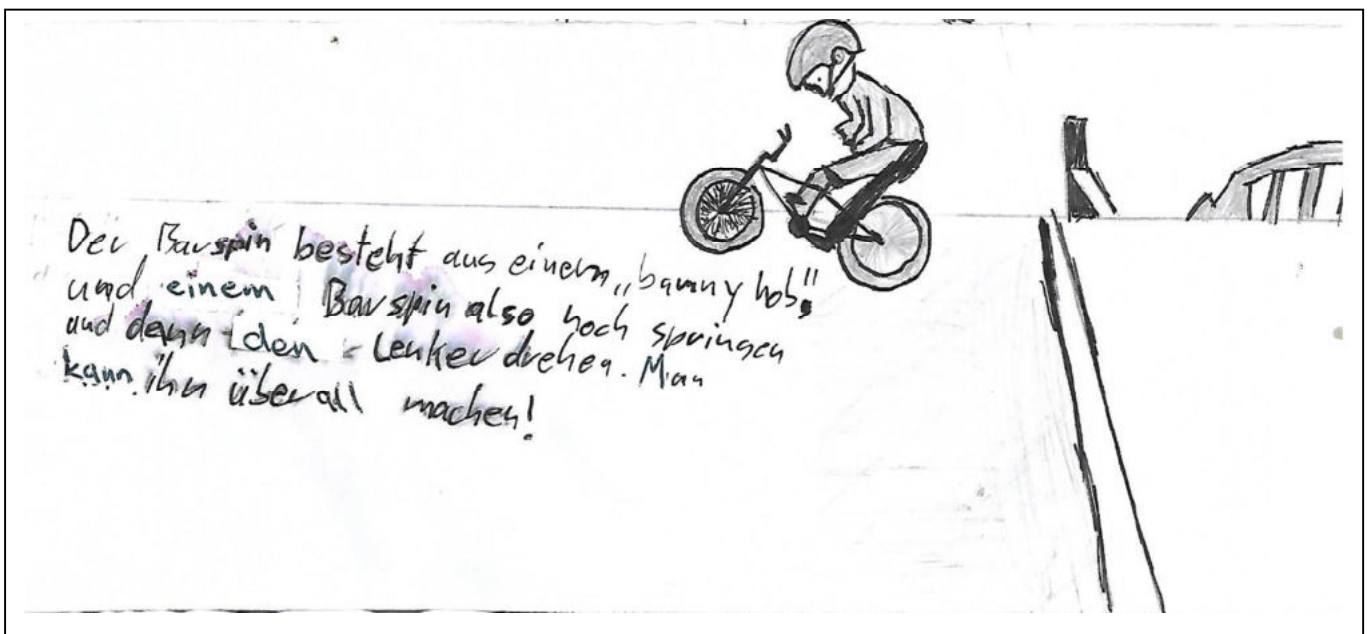 Der Barspin besteht aus einem „bunny hob"
und einem Barspin also hoch springen
und dann den Lenker drehen. Man
kann ihn überall machen!